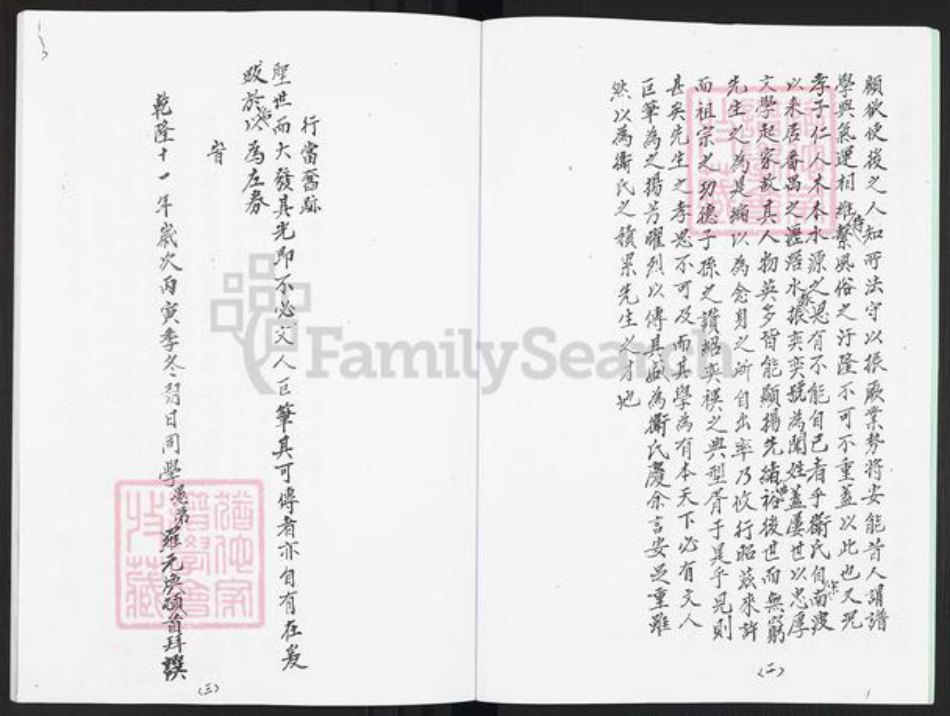 願欲使後之人知所法守以振厥業勢將安能首人誦譜
學與氣運相維繫風俗之汙隆不可不重蓋以此也又況
孝子仁人木本水源之思有不能自已者乎衛氏自南渡
以來居番禺之瀝滘水振奕奕號為閥姓蓋屢世以忠厚
文學起家故其人物英多皆能顯揚先緒裕後世而無窮
先生之為是編以為念身之所自出率乃攸行昭茲來許
而祖宗之功德子孫之讚紹奕禩之典型胥于是乎見則
甚矣先生之孝思不可及而其學為有本天下必有文人
巨筆為之揚芳曜烈以傳其盛為衛氏慶余言安足重雖
然以為衛氏之積累先生之才地
(二)
行當奮跡
聖世而大發其光即不必文人巨筆其可傳者亦自有在爰
跋於以為左券
旹
乾隆十一年歲次丙寅季冬 日同學愚弟羅元 頓首拜譔
(三)
FamilySearch